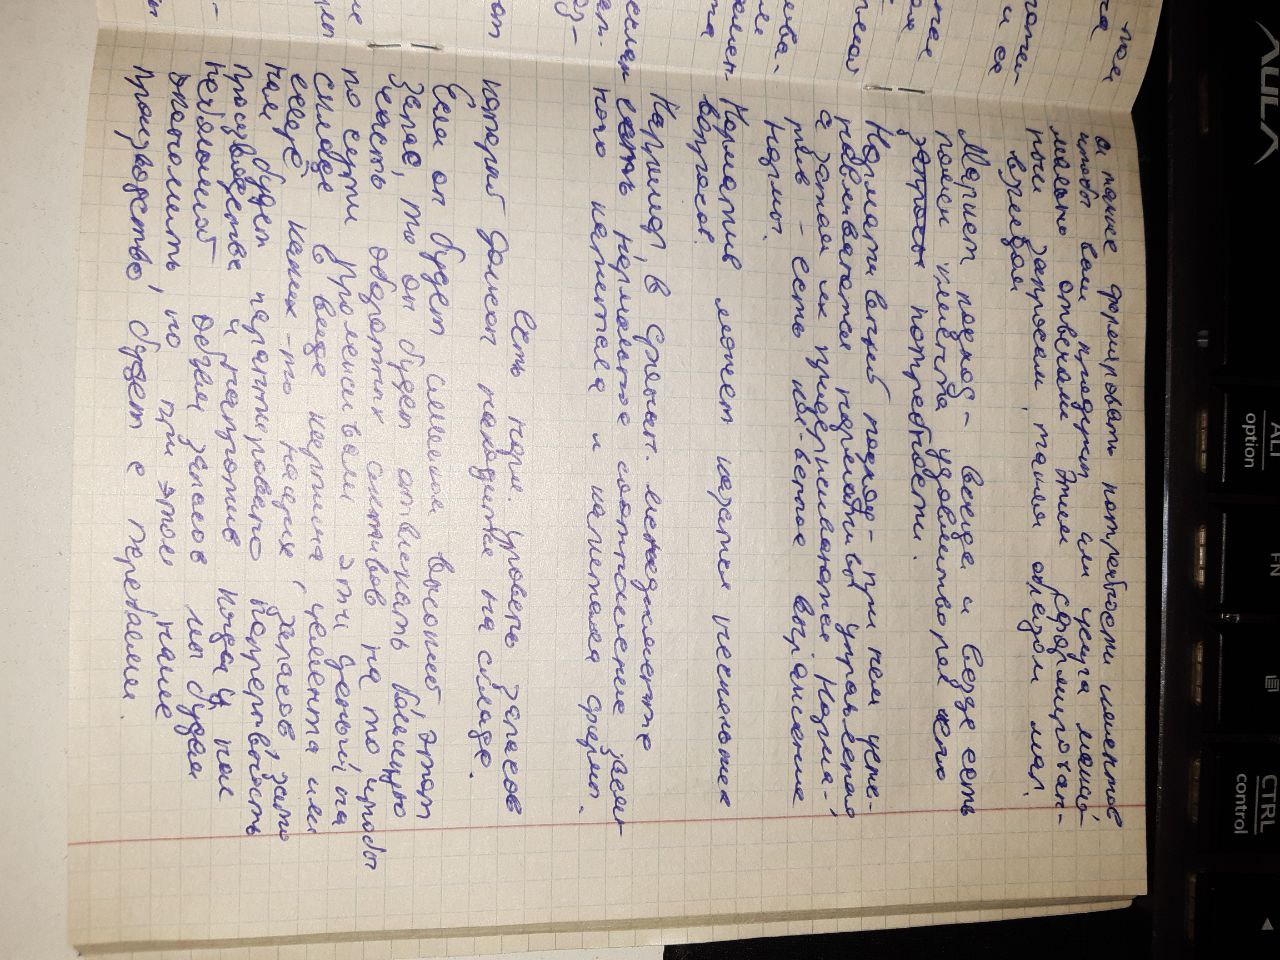 AULA
ALT
option
FN
CTRL
control
а также формировать потребности клиентов,
чтобы ваш продукт или услуга макси-
мально отвечали этим сформирован-
ным запросам, таким образом мал.
Маркет подход - всегда и везде есть
поиск клиента удовлитворяя его
запросы потребности.
Нормативный подход - при нем уста-
навливаются нормативы управления,
а затем их придерживаются. Норма-
тив - есть кол-венное выражение
нормы.
Норматив может касатся нескольких
вопросов.
Например, в финан. менеджменте
есть нормальное соотношение заем-
ного капитала и капитала фирмы.
Есть норм. уровень запасов
который должен находится на складе.
Если он будет слишком высокий, этот
запас, то он будет отвлекать большую
часть оборотных активов на то, чтобы
по сути пролеживали эти деньги на
складе в виде кирпича, цемента или
ещё каких-то наших запасов, зато
нам будет гарантировано непрерывность
производства и напротив когда у нас
небольшой объем запасов мы будем
экономить, но при этом наше
производство будет с перебоями.